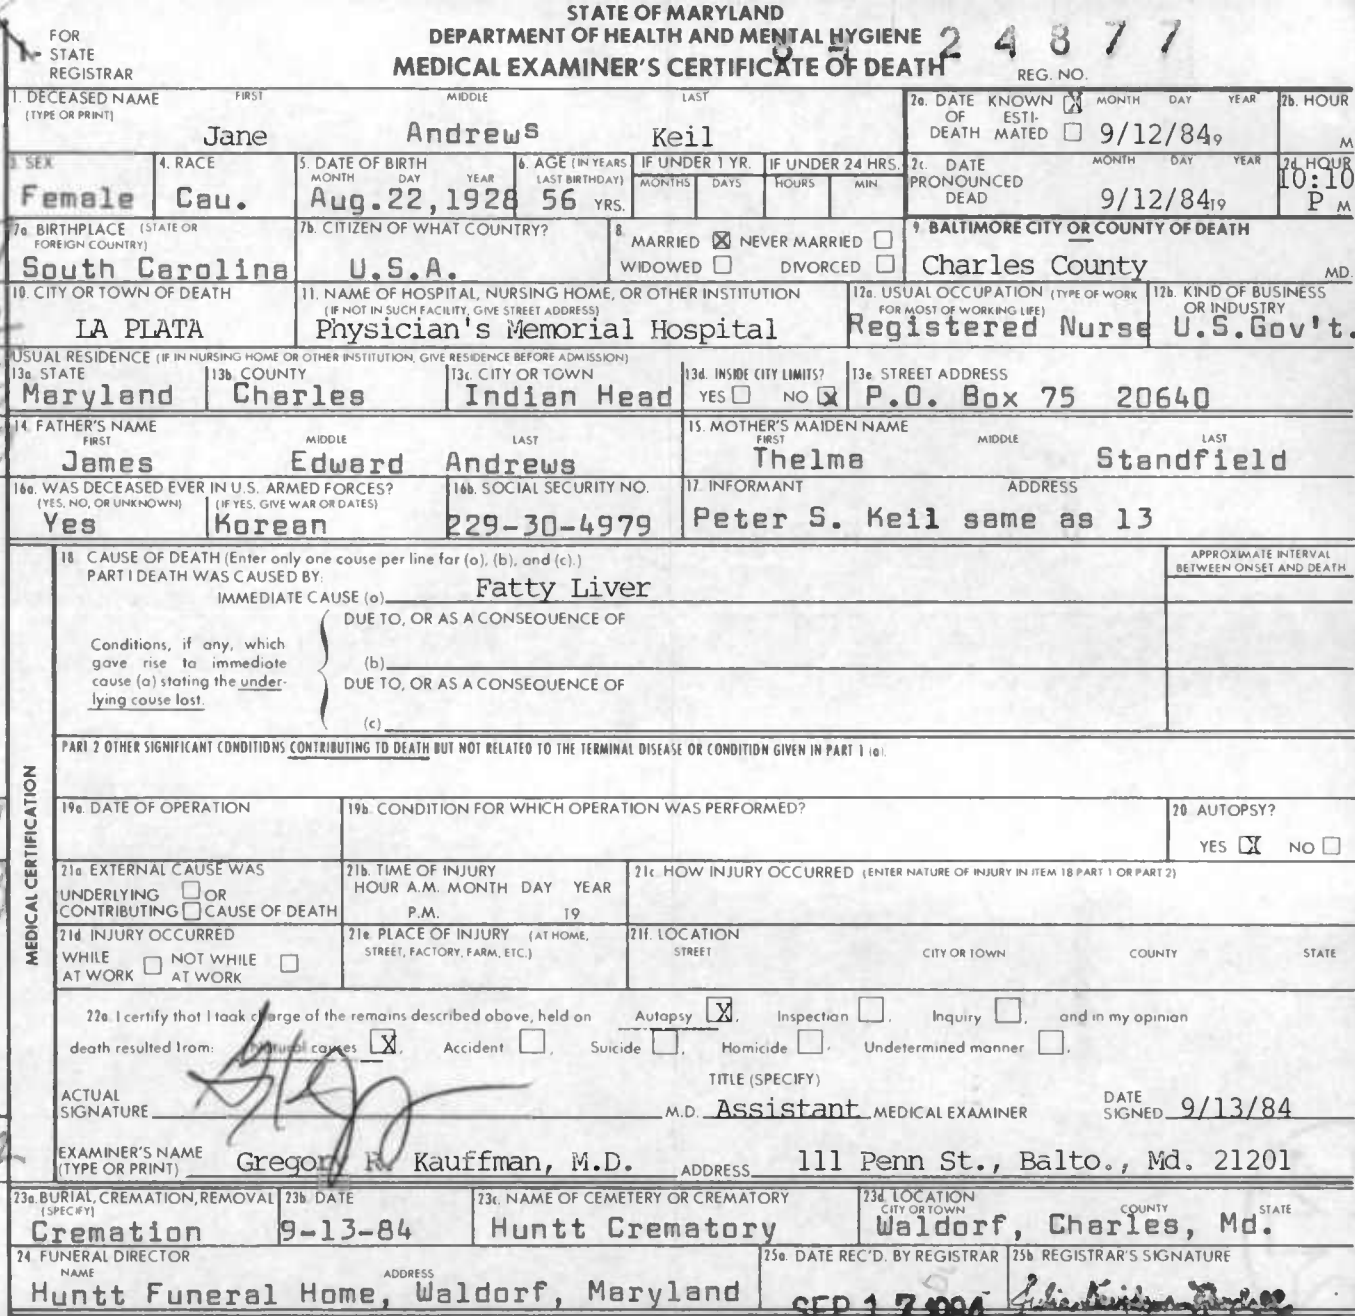 STATE OF MARYLAND
DEPARTMENT OF HEALTH AND MENTAL HYGIENE
MEDICAL EXAMINER'S CERTIFICATE OF DEATH
FOR STATE REGISTRAR
24877
REG. NO.
1. DECEASED NAME (TYPE OR PRINT) FIRST MIDDLE LAST
Jane Andrews Keil
2a. DATE OF DEATH KNOWN X ESTIMATED MONTH DAY YEAR
9/12/84 19
2b. HOUR M
3 SEX
Female
4. RACE
Cau.
5. DATE OF BIRTH MONTH DAY YEAR
Aug.22,1928
6. AGE (IN YEARS LAST BIRTHDAY)
56 YRS.
IF UNDER 1 YR. MONTHS DAYS
IF UNDER 24 HRS. HOURS MIN
2c. DATE PRONOUNCED DEAD MONTH DAY YEAR
9/12/84 19
2d HOUR
10:10 P M
7a BIRTHPLACE (STATE OR FOREIGN COUNTRY)
South Carolina
7b. CITIZEN OF WHAT COUNTRY?
U.S.A.
8. MARRIED X NEVER MARRIED
WIDOWED DIVORCED
9 BALTIMORE CITY OR COUNTY OF DEATH
Charles County MD.
10. CITY OR TOWN OF DEATH
LA PLATA
11. NAME OF HOSPITAL, NURSING HOME, OR OTHER INSTITUTION
(IF NOT IN SUCH FACILITY, GIVE STREET ADDRESS)
Physician's Memorial Hospital
12a. USUAL OCCUPATION (TYPE OF WORK FOR MOST OF WORKING LIFE)
Registered Nurse
12b. KIND OF BUSINESS OR INDUSTRY
U.S.Gov't.
USUAL RESIDENCE (IF IN NURSING HOME OR OTHER INSTITUTION, GIVE RESIDENCE BEFORE ADMISSION)
13a STATE
Maryland
13b COUNTY
Charles
13c. CITY OR TOWN
Indian Head
13d. INSIDE CITY LIMITS?
YES NO X
13e STREET ADDRESS
P.O. Box 75 20640
14 FATHER'S NAME FIRST MIDDLE LAST
James Edward Andrews
15. MOTHER'S MAIDEN NAME FIRST MIDDLE LAST
Thelma Standfield
16a. WAS DECEASED EVER IN U.S. ARMED FORCES?
(YES, NO, OR UNKNOWN) (IF YES, GIVE WAR OR DATES)
Yes Korean
16b. SOCIAL SECURITY NO.
229-30-4979
17. INFORMANT ADDRESS
Peter S. Keil same as 13
MEDICAL CERTIFICATION
18 CAUSE OF DEATH (Enter only one cause per line for (a), (b), and (c).)
PART I DEATH WAS CAUSED BY:
IMMEDIATE CAUSE (a) Fatty Liver
APPROXIMATE INTERVAL BETWEEN ONSET AND DEATH
DUE TO, OR AS A CONSEQUENCE OF
Conditions, if any, which gave rise to immediate cause (a) stating the underlying cause last.
(b)
DUE TO, OR AS A CONSEQUENCE OF
(c)
PART 2 OTHER SIGNIFICANT CONDITIONS CONTRIBUTING TO DEATH BUT NOT RELATED TO THE TERMINAL DISEASE OR CONDITION GIVEN IN PART 1 (a).
19a. DATE OF OPERATION
19b. CONDITION FOR WHICH OPERATION WAS PERFORMED?
20 AUTOPSY?
YES X NO
21a EXTERNAL CAUSE WAS
UNDERLYING OR
CONTRIBUTING CAUSE OF DEATH
21b. TIME OF INJURY
HOUR A.M. MONTH DAY YEAR
P.M. 19
21c HOW INJURY OCCURRED (ENTER NATURE OF INJURY IN ITEM 18 PART 1 OR PART 2)
21d INJURY OCCURRED
WHILE AT WORK NOT WHILE AT WORK
21e. PLACE OF INJURY (AT HOME, STREET, FACTORY, FARM, ETC.)
21f. LOCATION
STREET CITY OR TOWN COUNTY STATE
22a I certify that I took charge of the remains described above, held on Autopsy X, Inspection, Inquiry, and in my opinion
death resulted from: Natural causes X, Accident, Suicide, Homicide, Undetermined manner.
ACTUAL SIGNATURE
TITLE (SPECIFY)
M.D. Assistant MEDICAL EXAMINER
DATE SIGNED 9/13/84
EXAMINER'S NAME (TYPE OR PRINT) Gregory R. Kauffman, M.D.
ADDRESS 111 Penn St., Balto., Md. 21201
23a. BURIAL, CREMATION, REMOVAL (SPECIFY)
Cremation
23b DATE
9-13-84
23c. NAME OF CEMETERY OR CREMATORY
Huntt Crematory
23d LOCATION CITY OR TOWN COUNTY STATE
Waldorf, Charles, Md.
24 FUNERAL DIRECTOR NAME ADDRESS
Huntt Funeral Home, Waldorf, Maryland
25a. DATE REC'D. BY REGISTRAR
SEP 17
25b REGISTRAR'S SIGNATURE